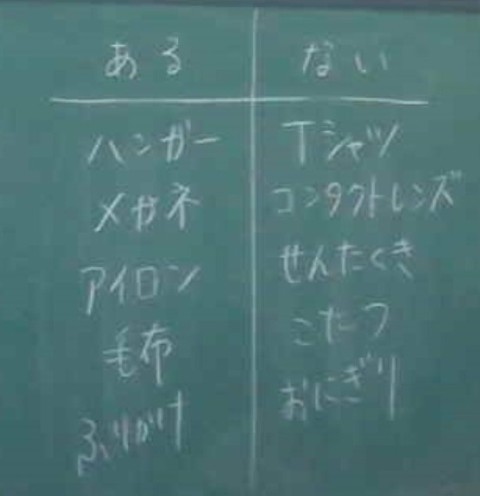 ある ない
ハンガー Tシャツ
メガネ コンタクトレンズ
アイロン せんたくき
毛布 こたつ
ふりかけ おにぎり